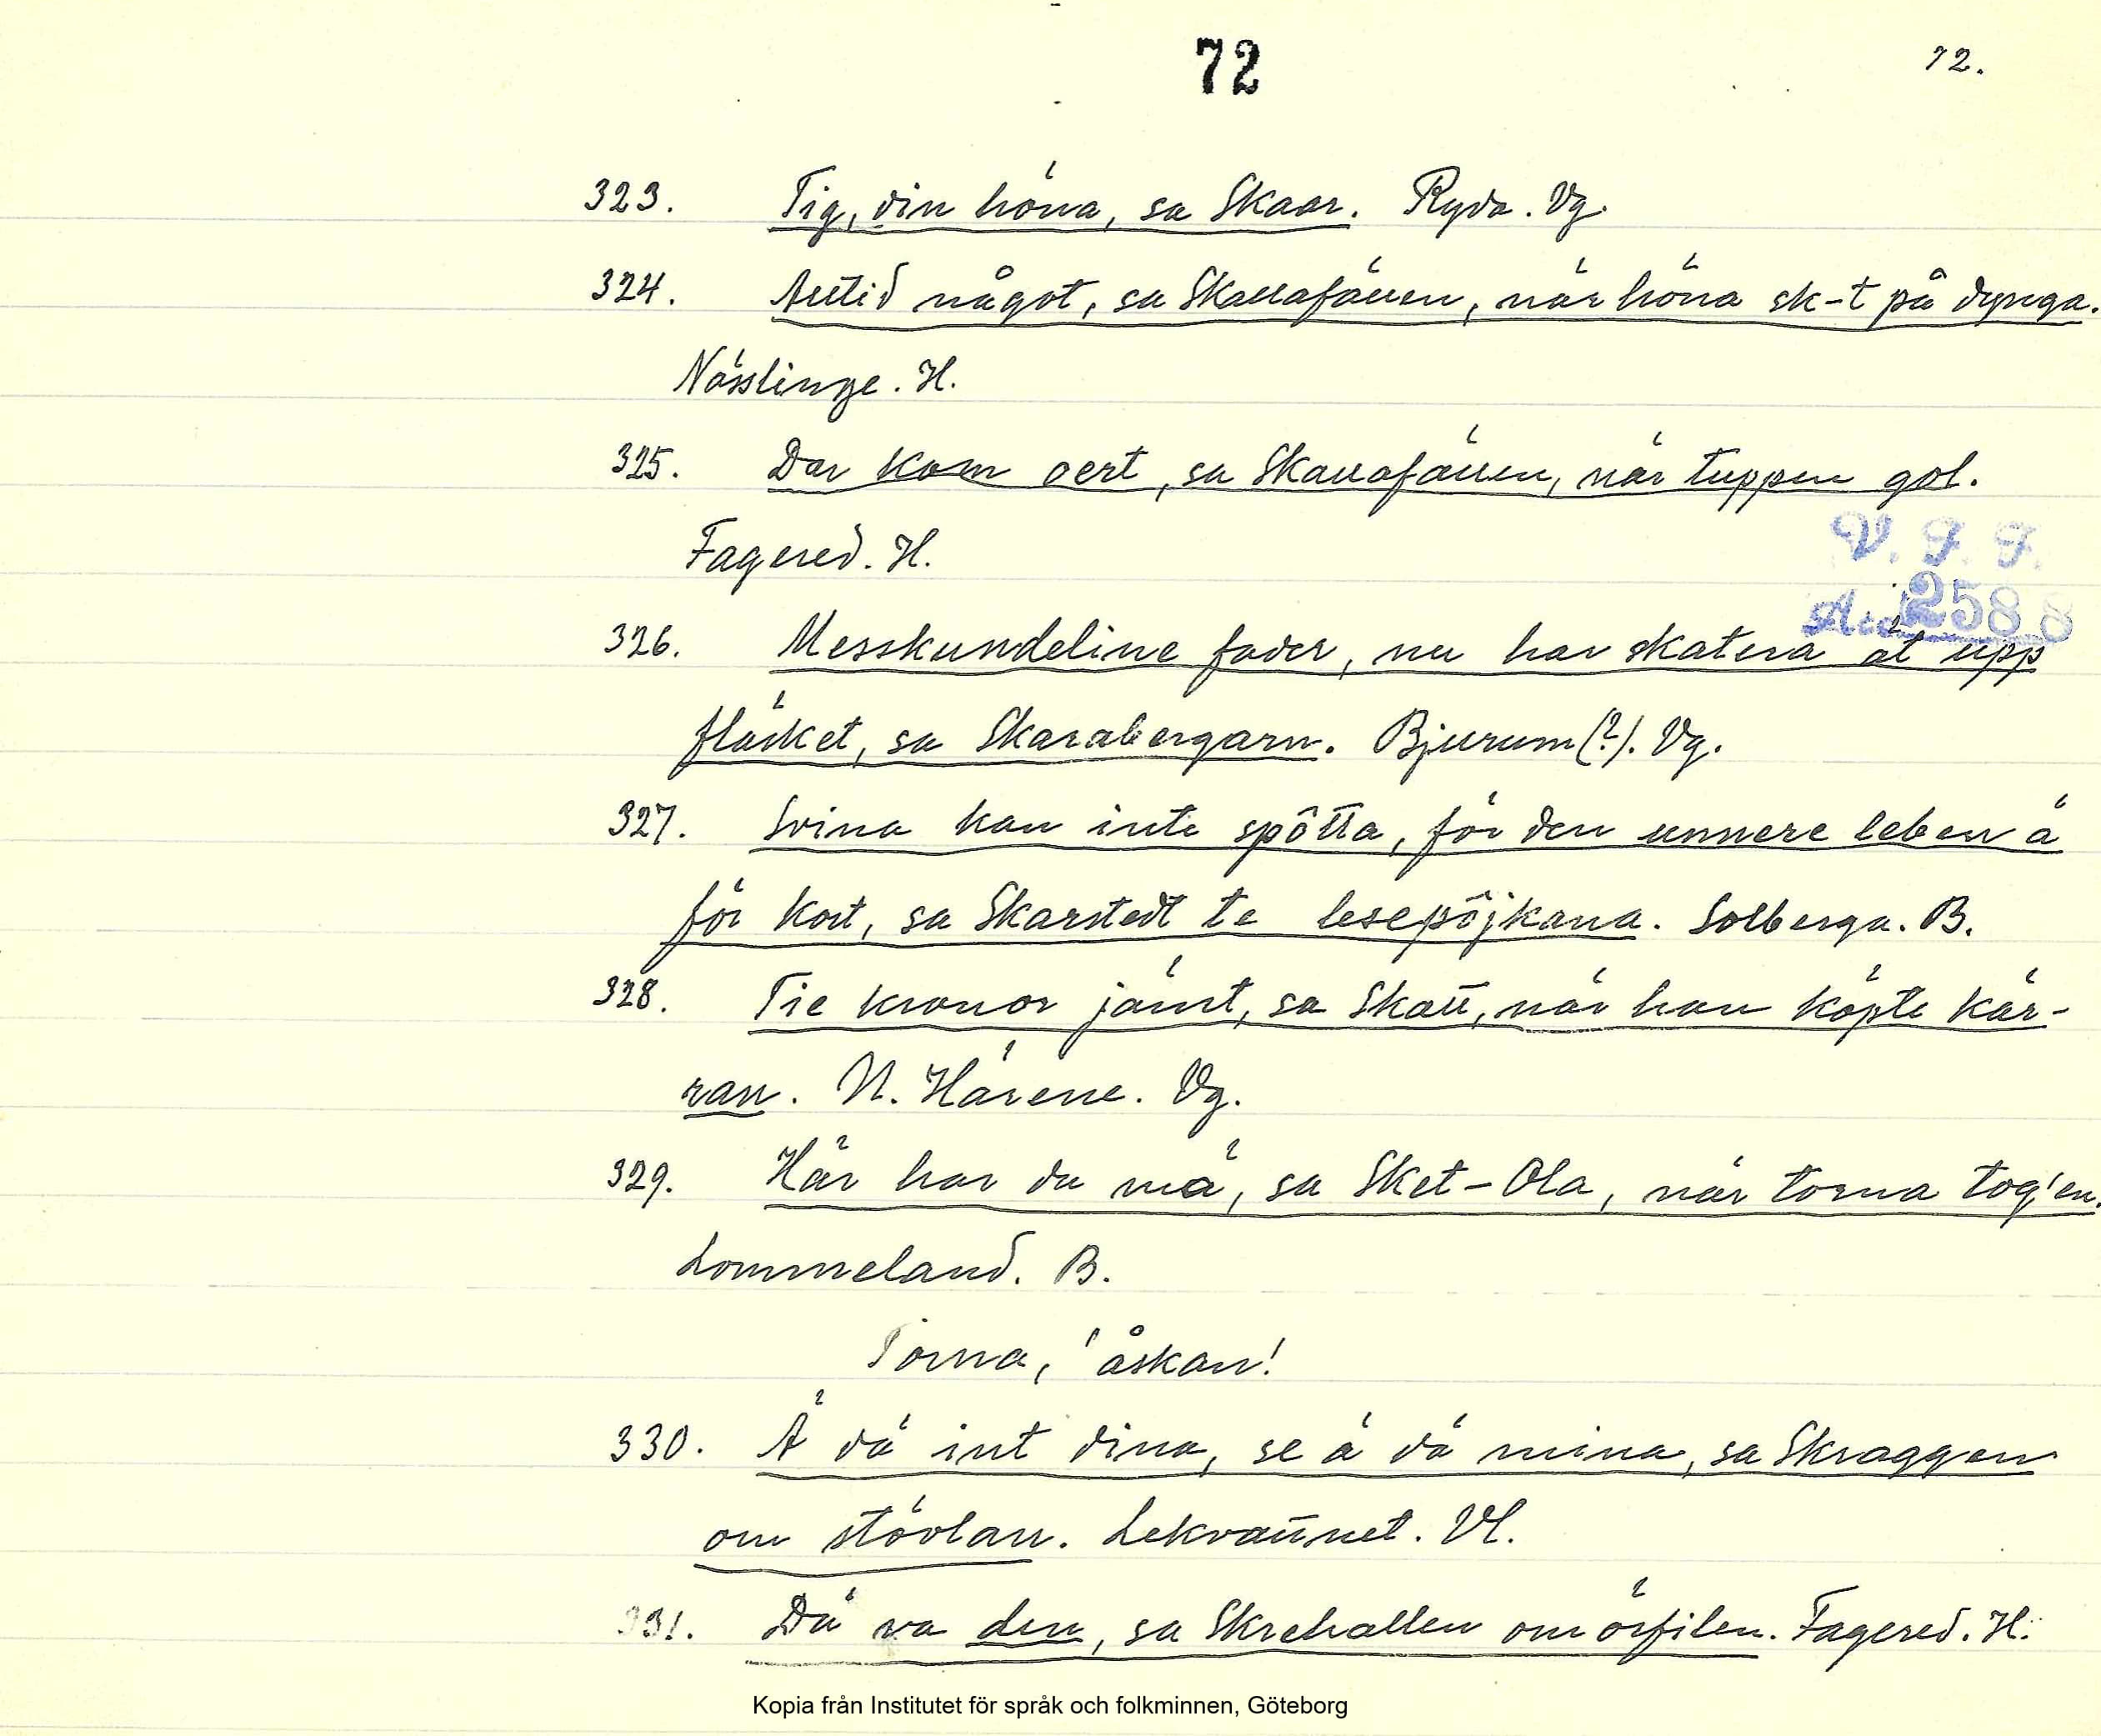 72
72.
323. Tig, din höna, sa Skaar. Ryda. Vg.
324. Alltid något, sa Skallafällen, när höna sk-t på dynga.
Nösslinge. H.
325. Dar kom oert, sa Skallafällen, när tuppen gol.
Fagered. H.
V. F. F.
Acc. 2588
326. Messkundeline fader, nu har skatera ät upp
fläsket, sa Skarabergarn. Bjurum (?). Vg.
327. Svina kan inte spôtta, för den unnere leben ä
för kort, sa Skarstedt te lesepôjkana. Solberga. B.
328. Tie kronor jämt, sa Skatt, när han köpte kär-
ran. N. Härene. Vg.
329. Här har du mä, sa Sket-Ola, när torna tog'en.
Lommeland. B.
Torna, 'åskan!
330. Ä dä int dina, se ä dä mina, sa Skraggen
om stövlan. Lekvattnet. Vl.
331. Dä va den, sa Skrehallen om örfilen. Fagered. H.
Kopia från Institutet för språk och folkminnen, Göteborg